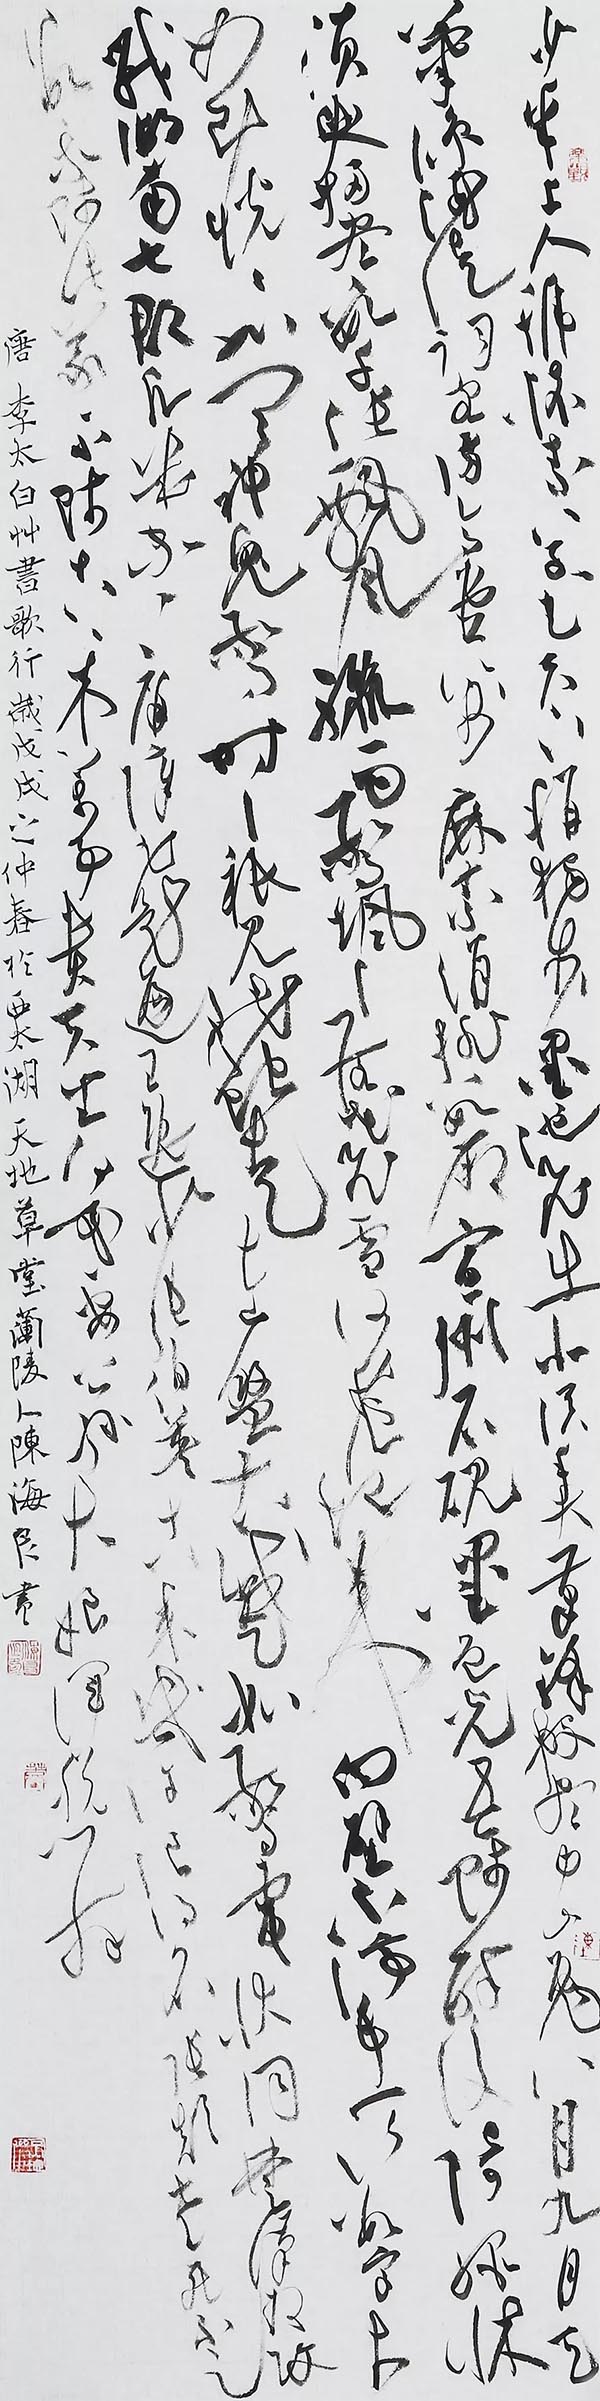 少年上人號懷素草書天下稱獨步墨池飛出北溟魚筆鋒殺盡中山兔八月九月天
氣涼酒徒詞客滿高堂箋麻素絹排數廂宣州石硯墨色光吾師醉後倚繩床
須臾掃盡數千張飄風驟雨驚颯颯落花飛雪何茫茫起來向壁不停手一行數字大
如斗恍恍如聞神鬼驚時時祇見龍蛇走左盤右蹙如驚電狀同楚漢相攻
戰湖南七郡凡幾家家家屏障書題遍王逸少張伯英古來幾許浪得名張顛老死不足
數我師此義不師古古來萬事貴天生何必要公孫大娘渾脫舞
唐李太白艸書歌行歲戊戌之仲春於西太湖天地草堂蘭陵人陳海良書